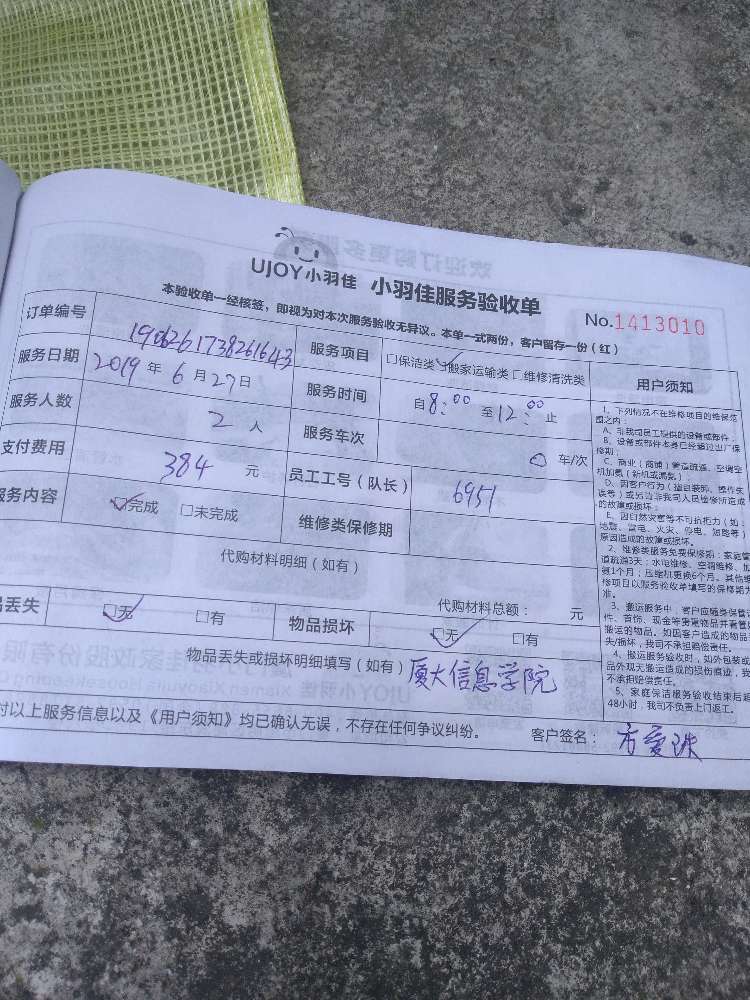 UJOY小羽佳 小羽佳服务验收单
No.1413010
本验收单一经核签，即视为对本次服务验收无异议。本单一式两份，客户留存一份（红）
订单编号 1906261738261643 服务项目 □保洁类 ☑搬家运输类 □维修清洗类
服务日期 2019年6月27日 服务时间 自8:00至12:00止
服务人数 2人 服务车次 0车/次
支付费用 384元 员工工号（队长） 6951
服务内容 ☑完成 □未完成 维修类保修期
代购材料明细（如有）
代购材料总额： 元
丢失 ☑无 □有 物品损坏 ☑无 □有
物品丢失或损坏明细填写（如有） 厦大信息学院
对以上服务信息以及《用户须知》均已确认无误，不存在任何争议纠纷。 客户签名： 方爱
用户须知
1、下列情况不在维修项目的维保范
围之内：
A、非我司员工提供的设备或部件；
B、设备或部件本身已经超过出厂保
修期；
C、商业（商铺）管道疏通、空调空
机加氨（新机或漏氨）；
D、因客户行为（擅自装卸、操作失
误等）或另访非我司人员检修所造成
的故障或损坏；
E、因自然灾害等不可抗拒力（如：
地震、雷电、火灾、停电、短路等）
原因造成的故障或损坏。
2、维修类服务免费保修期：家庭管
道疏通3天；水电维修、空调维修、加
1个月；压缩机更换6个月。其他维
修项目以服务验收单填写的保修期为
准。
3、搬运服务中，客户应随身保管
件、首饰、现金等贵重物品并看管
搬运的物品。如因客户造成的物品
失/损坏，我司不承担赔偿责任。
4、搬运服务验收时，如外包装或
品外观无搬运造成的损伤痕迹，我
不承担赔偿责任。
5、家庭保洁服务验收结束后超
48小时，我司不负责上门返工。